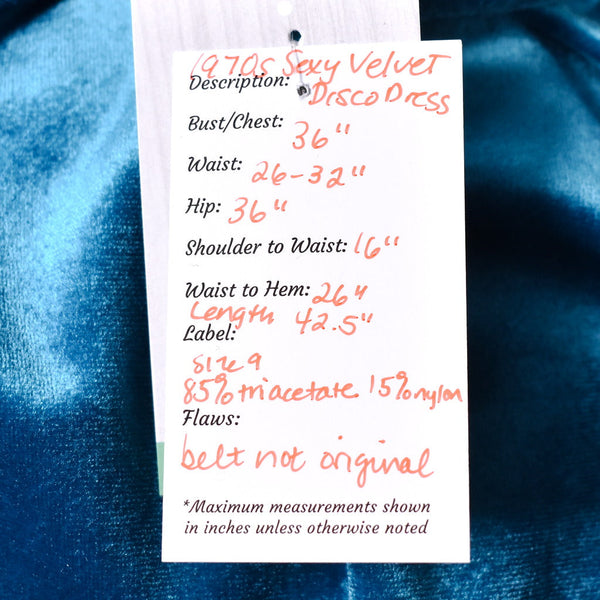 1970s Sexy Velvet
Description: Disco Dress
Bust/Chest: 36"
Waist: 26-32"
Hip: 36"
Shoulder to Waist: 16"
Waist to Hem: 26"
Length 42.5"
Label:
Size 9
85% triacetate 15% nylon
Flaws:
belt not original
*Maximum measurements shown
in inches unless otherwise noted